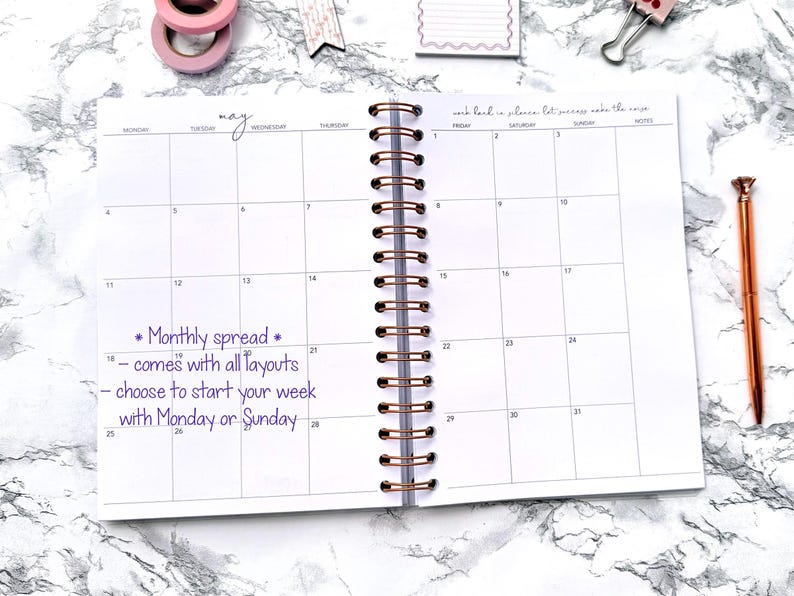 may
work hard in silence. let success make the noise
MONDAY TUESDAY WEDNESDAY THURSDAY FRIDAY SATURDAY SUNDAY NOTES
1 2 3
4 5 6 7 8 9 10
11 12 13 14 15 16 17
18 19 20 21 22 23 24
25 26 27 28 29 30 31
* Monthly spread *
- comes with all layouts
- choose to start your week
with Monday or Sunday